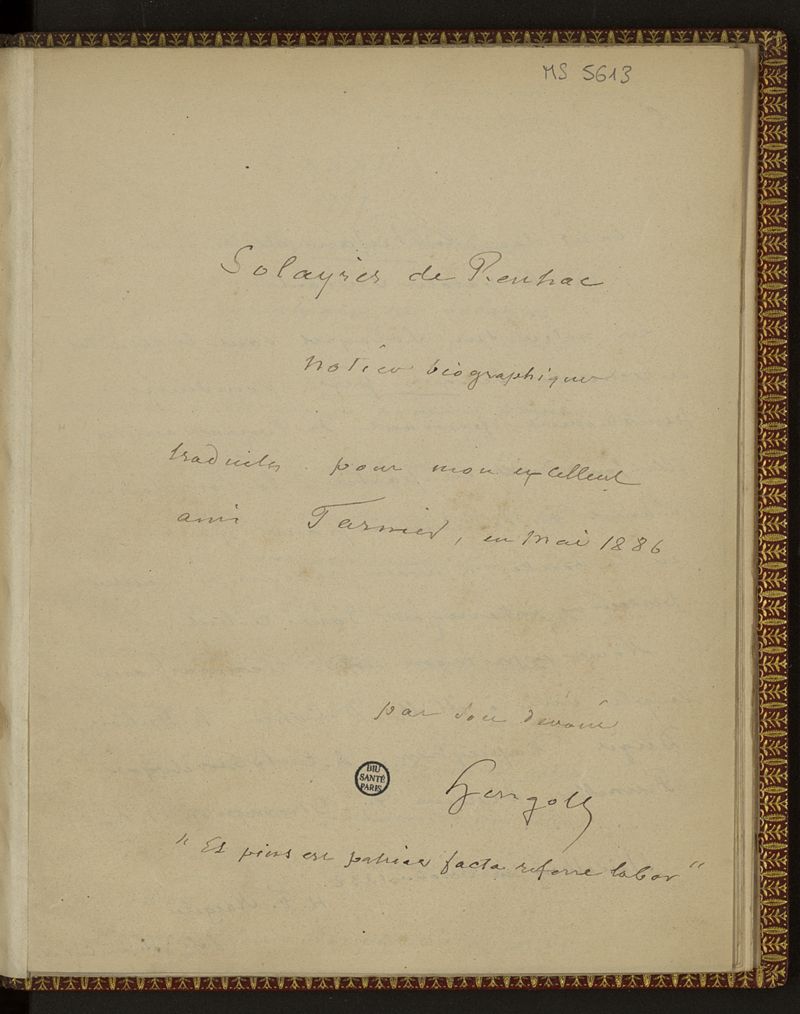 MS 5613
Solayrès de Renhac
notice biographique
traduite pour mon excellent
ami Tarnier, en Mai 1886
par son dévoué
Hergott
BIU
SANTÉ
PARIS
"Et pius est patriae facta referre labor"